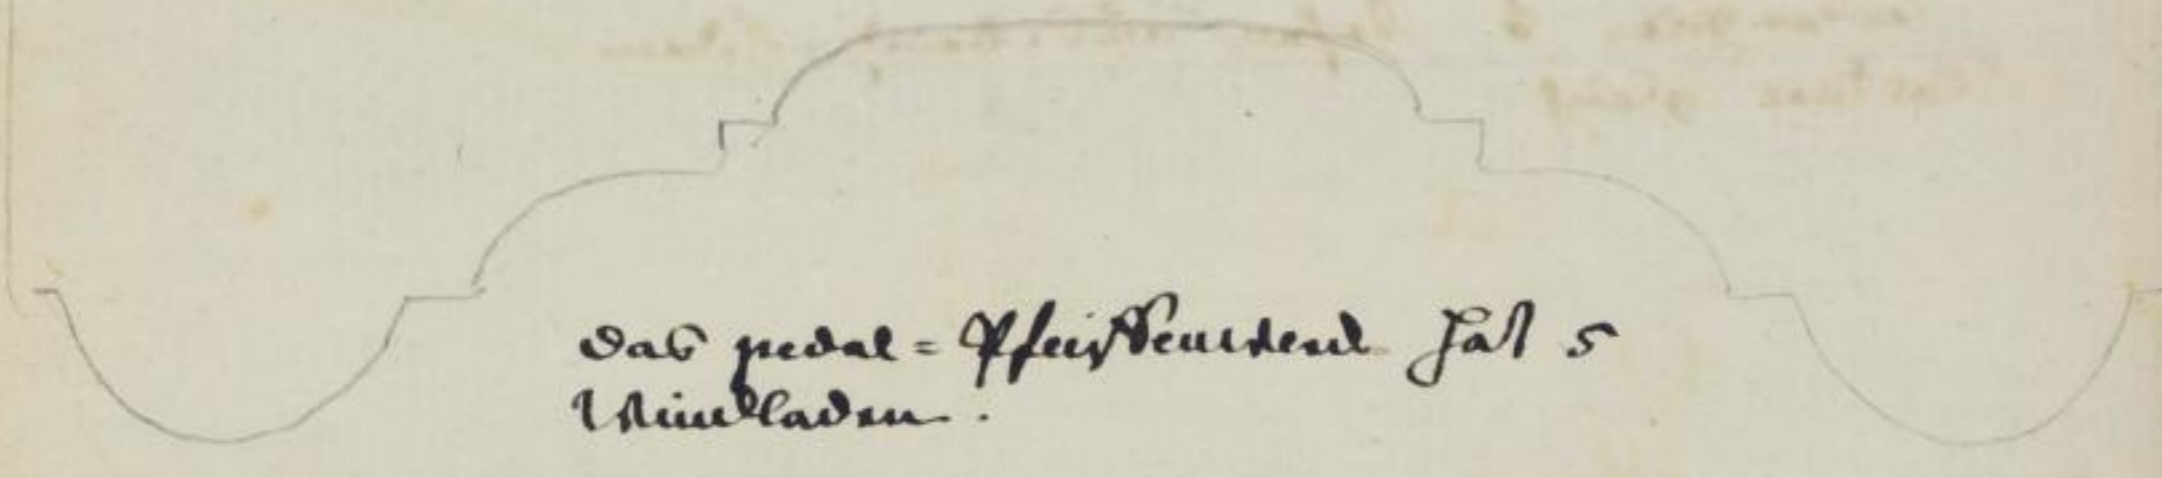 das pedal = Pfeiffenwerck hat 5
Windladen.